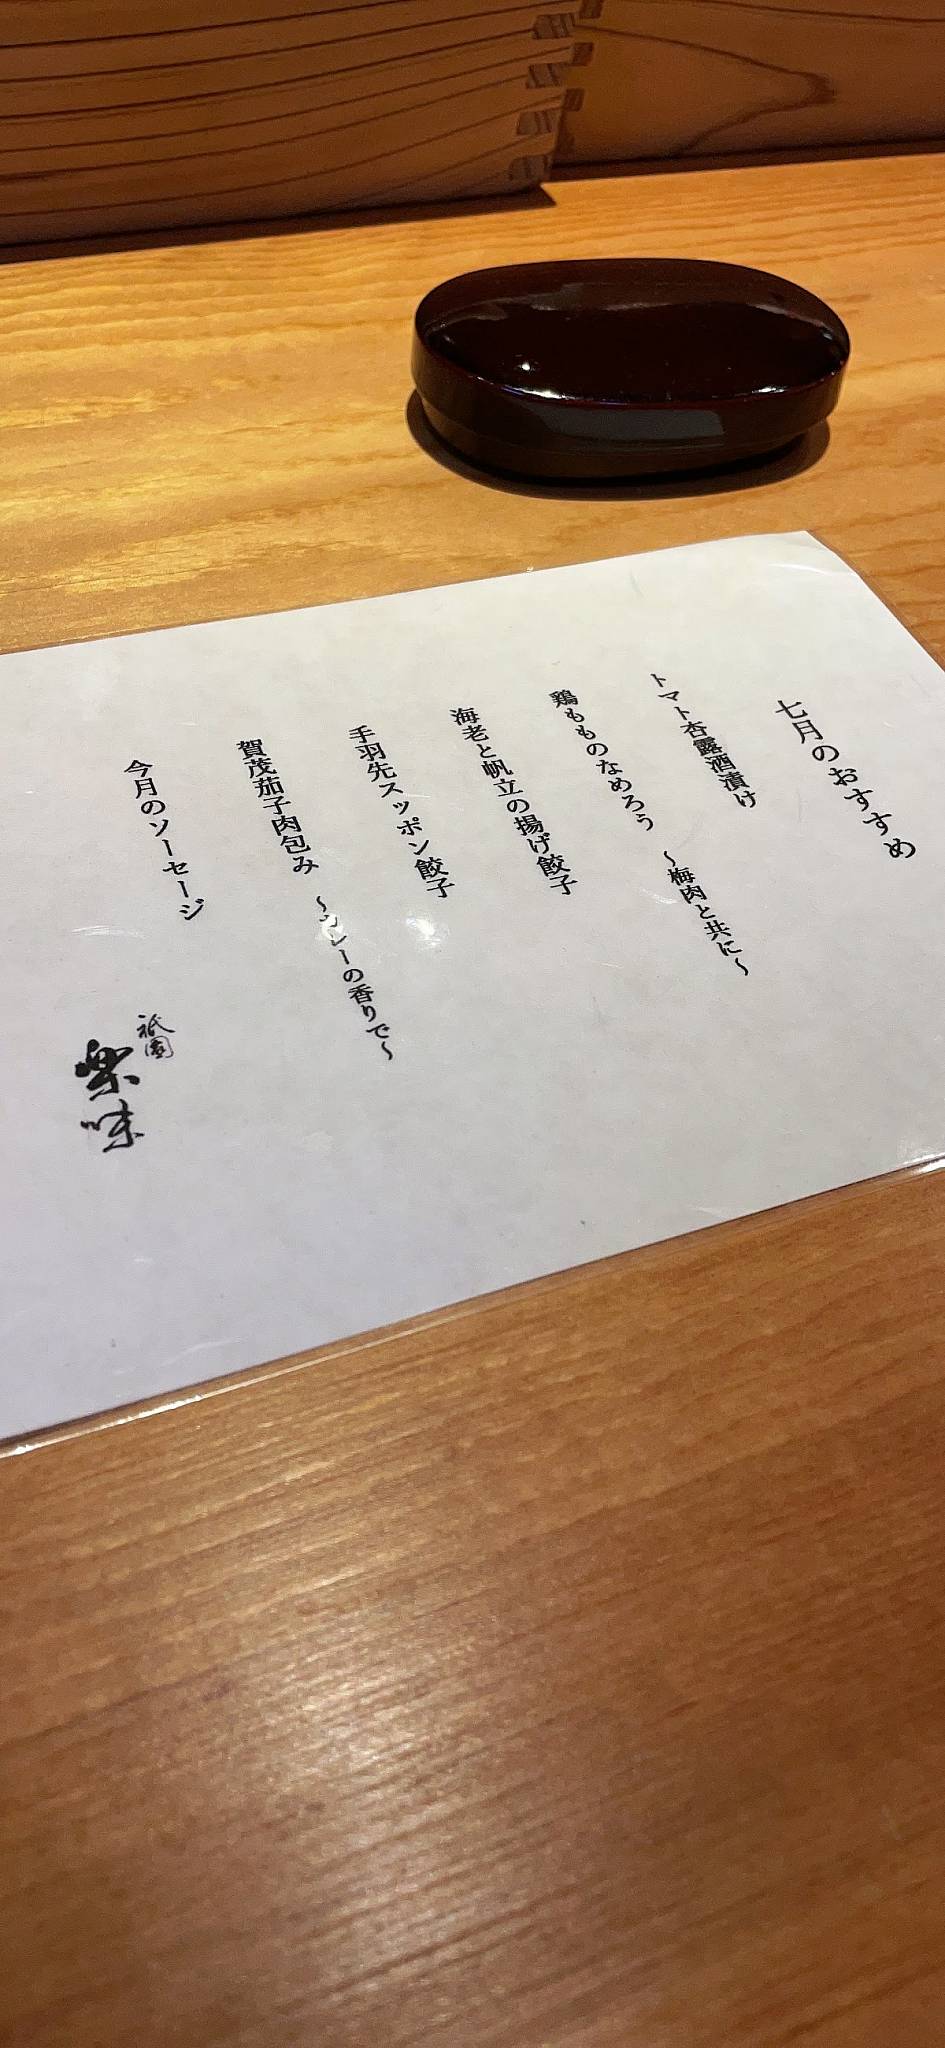 七月のおすすめ
トマト杏露酒漬け
鶏もものなめろう ～梅肉と共に～
海老と帆立の揚げ餃子
手羽先スッポン餃子
賀茂茄子肉包み ～カレーの香りで～
今月のソーセージ
祇園
楽味